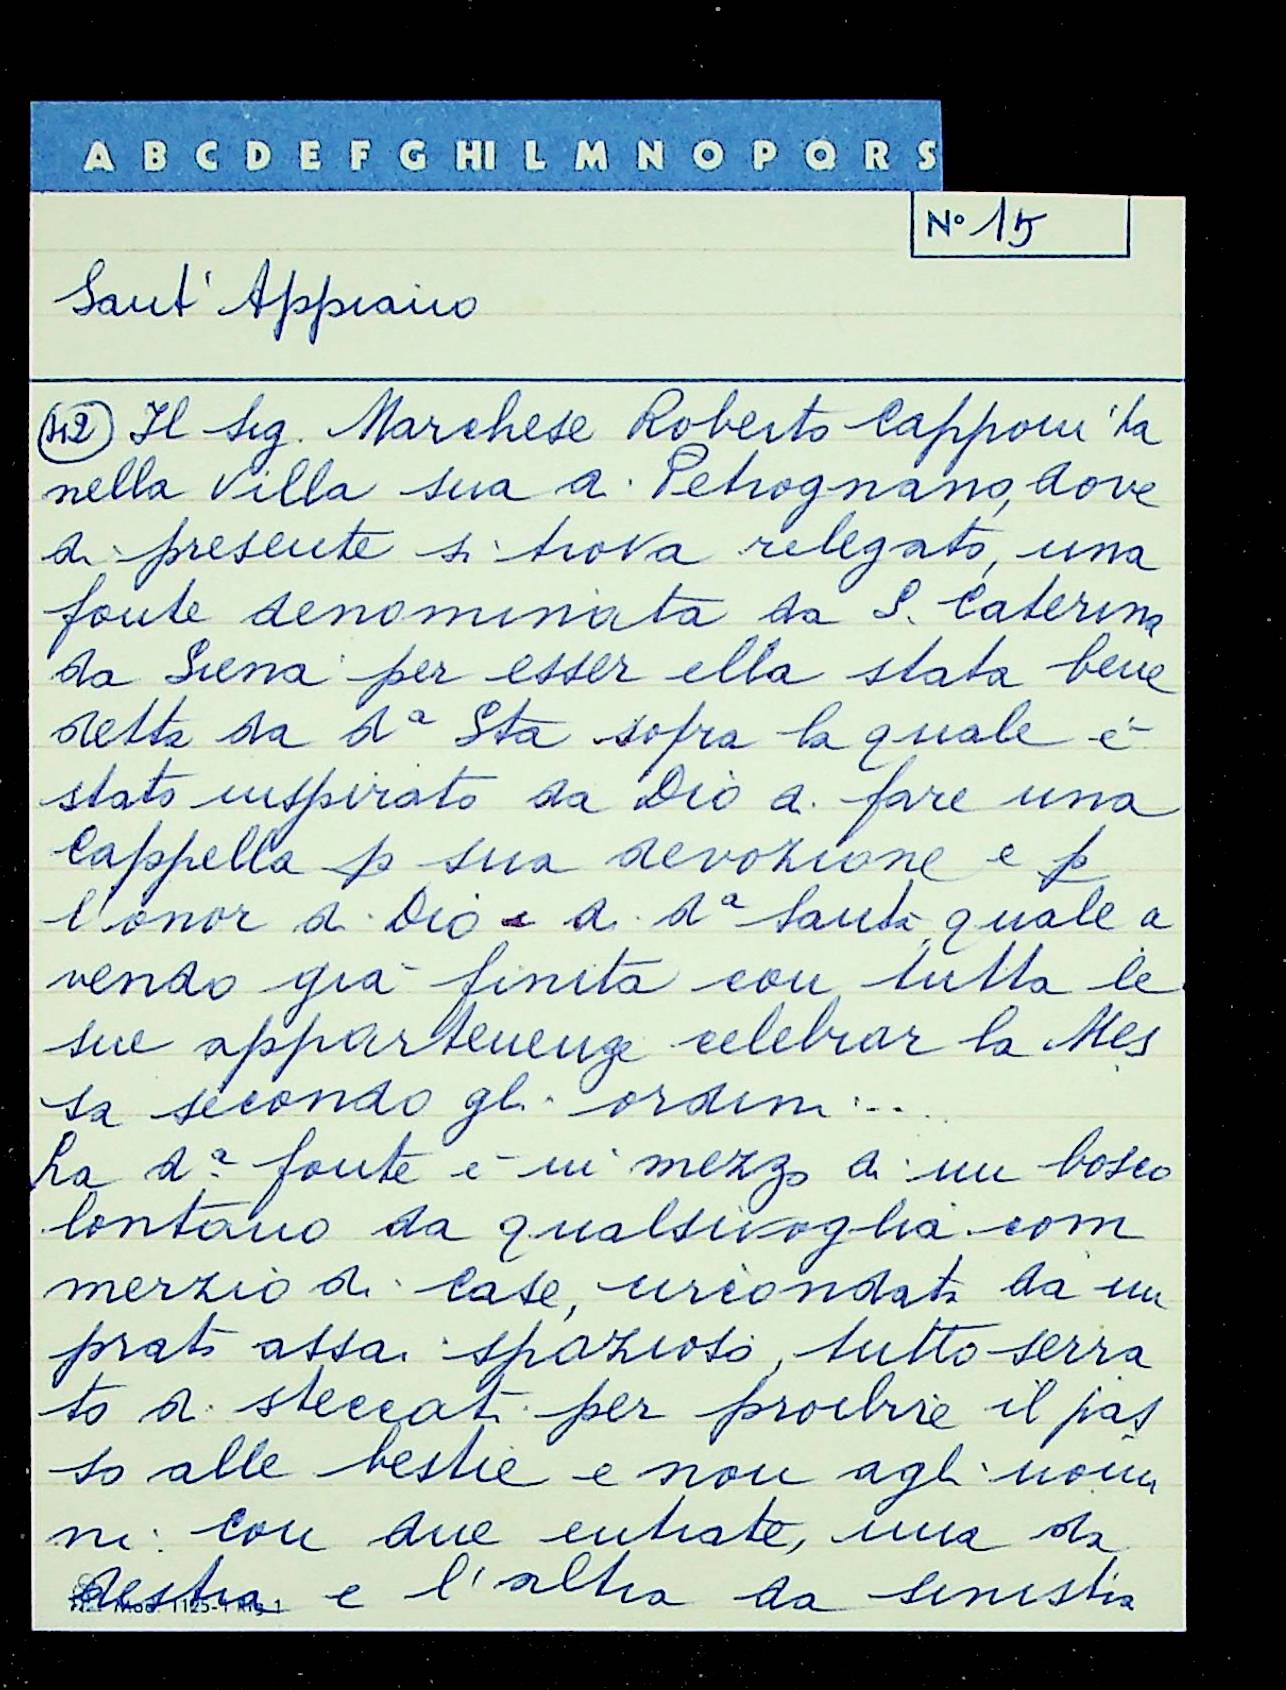 A B C D E F G HI L M N O P Q R S
N° 15
Sant' Appiano
Il Sig. Marchese Roberto Capponi ha
nella Villa sua di Petrognano, dove
di presente si trova relegato, una
fonte denominata da S. Caterina
da Siena per esser ella stata bene
detta da dª Sta sopra la quale è
stato inspirato da Dio di fare una
Cappella p sua devozione e p
l'onor di Dio e di dª Santa, quale a
vendo già finita con tutta le
sue appartenenze celebrar la Mes
sa secondo gli ordini ...
La dª fonte è in mezzo di un bosco
lontano da qualsivoglia com
merzio di Case, circondata da un
prato assai spazioso, tutto serra
to di steccati per proibire il pas
so alle bestie e non agli uomi
ni. Con due entrate, una da
destra e l'altra da sinistra
Mod. 1125-1 Rig 1